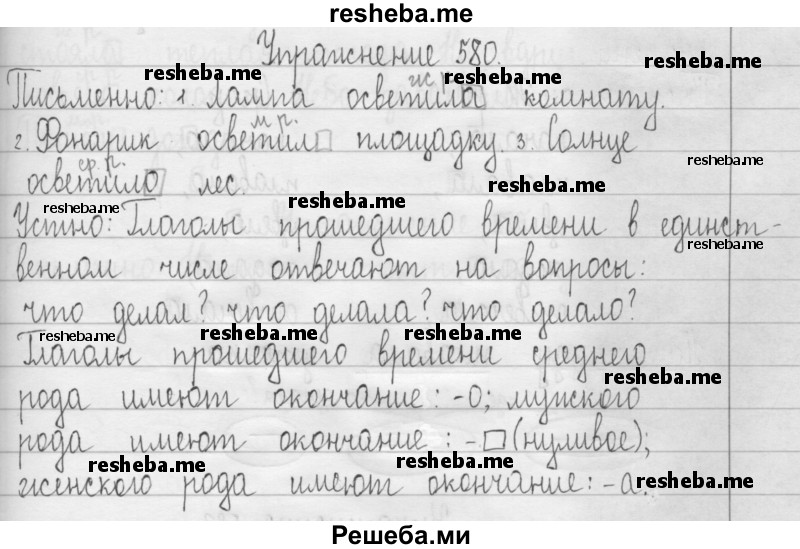 resheba.me
Упражнение 580.
resheba.me resheba.me resheba.me
ж.р.
Письменно: 1. Лампа осветила комнату.
м.р.
2. Фонарик осветил площадку. 3. Солнце
resheba.me
ср.р.
осветило лес.
resheba.me resheba.me resheba.me
Устно: Глаголы прошедшего времени в единст-
resheba.me
венном числе отвечают на вопросы:
что делал? что делала? что делало?
resheba.me resheba.me resheba.me
Глаголы прошедшего времени среднего
resheba.me
рода имеют окончание: -о; мужского
рода имеют окончание: -□ (нуливое);
resheba.me resheba.me resheba.me
женского рода имеют окончание: -а.
Решеба.ми